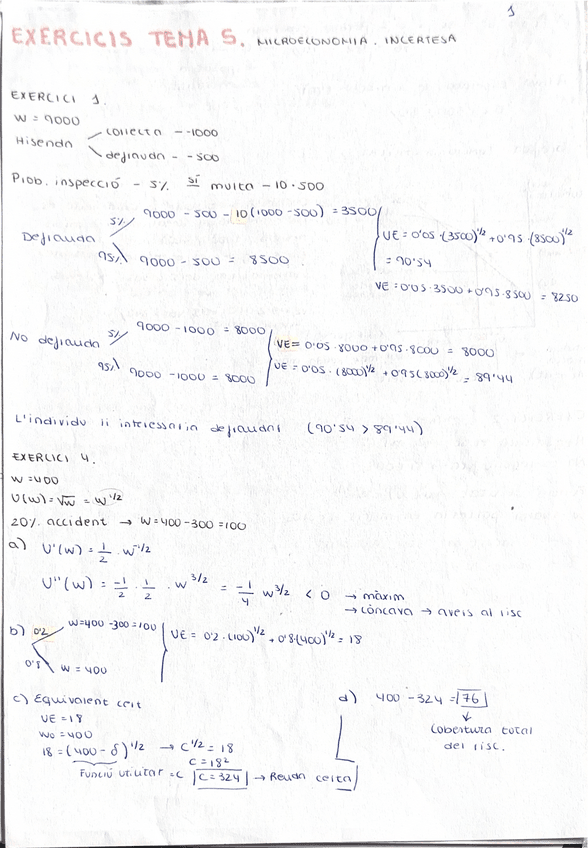 1
EXERCICIS TEMA 5. MICROECONOMIA. INCERTESA
EXERCICI 1.
W = 9000
Hisenda
correcta - -1000
defrauda - -500
Prob. inspecció - 5% sí multa - 10 · 500
Defrauda
5% 9000 - 500 - 10(1000 - 500) = 3500
95% 9000 - 500 = 8500
UE = 0'05 · (3500)^1/2 + 0'95 · (8500)^1/2
= 90'54
VE = 0'05 · 3500 + 0'95 · 8500 = 8250
No defrauda
5% 9000 - 1000 = 8000
95% 9000 - 1000 = 8000
VE = 0'05 · 8000 + 0'95 · 8000 = 8000
UE = 0'05 · (8000)^1/2 + 0'95 (8000)^1/2 = 89'44
L'individu li interessaria defraudar (90'54 > 89'44)
EXERCICI 4.
W = 400
U(W) = √W = W^1/2
20% accident → W = 400 - 300 = 100
a) U'(W) = 1/2 · W^-1/2
U''(W) = -1/2 · 1/2 · W^3/2 = -1/4 W^3/2 < 0 → màxim
→ còncava → avers al risc
b) 0'2 W = 400 - 300 = 100
0'8 W = 400
UE = 0'2 · (100)^1/2 + 0'8 · (400)^1/2 = 18
c) Equivalent cert
UE = 18
W0 = 400
18 = (400 - δ)^1/2 → C^1/2 = 18
C = 18²
Funció utilitat = C C = 324 → Renda certa
d) 400 - 324 = 76
↓
Cobertura total
del risc.